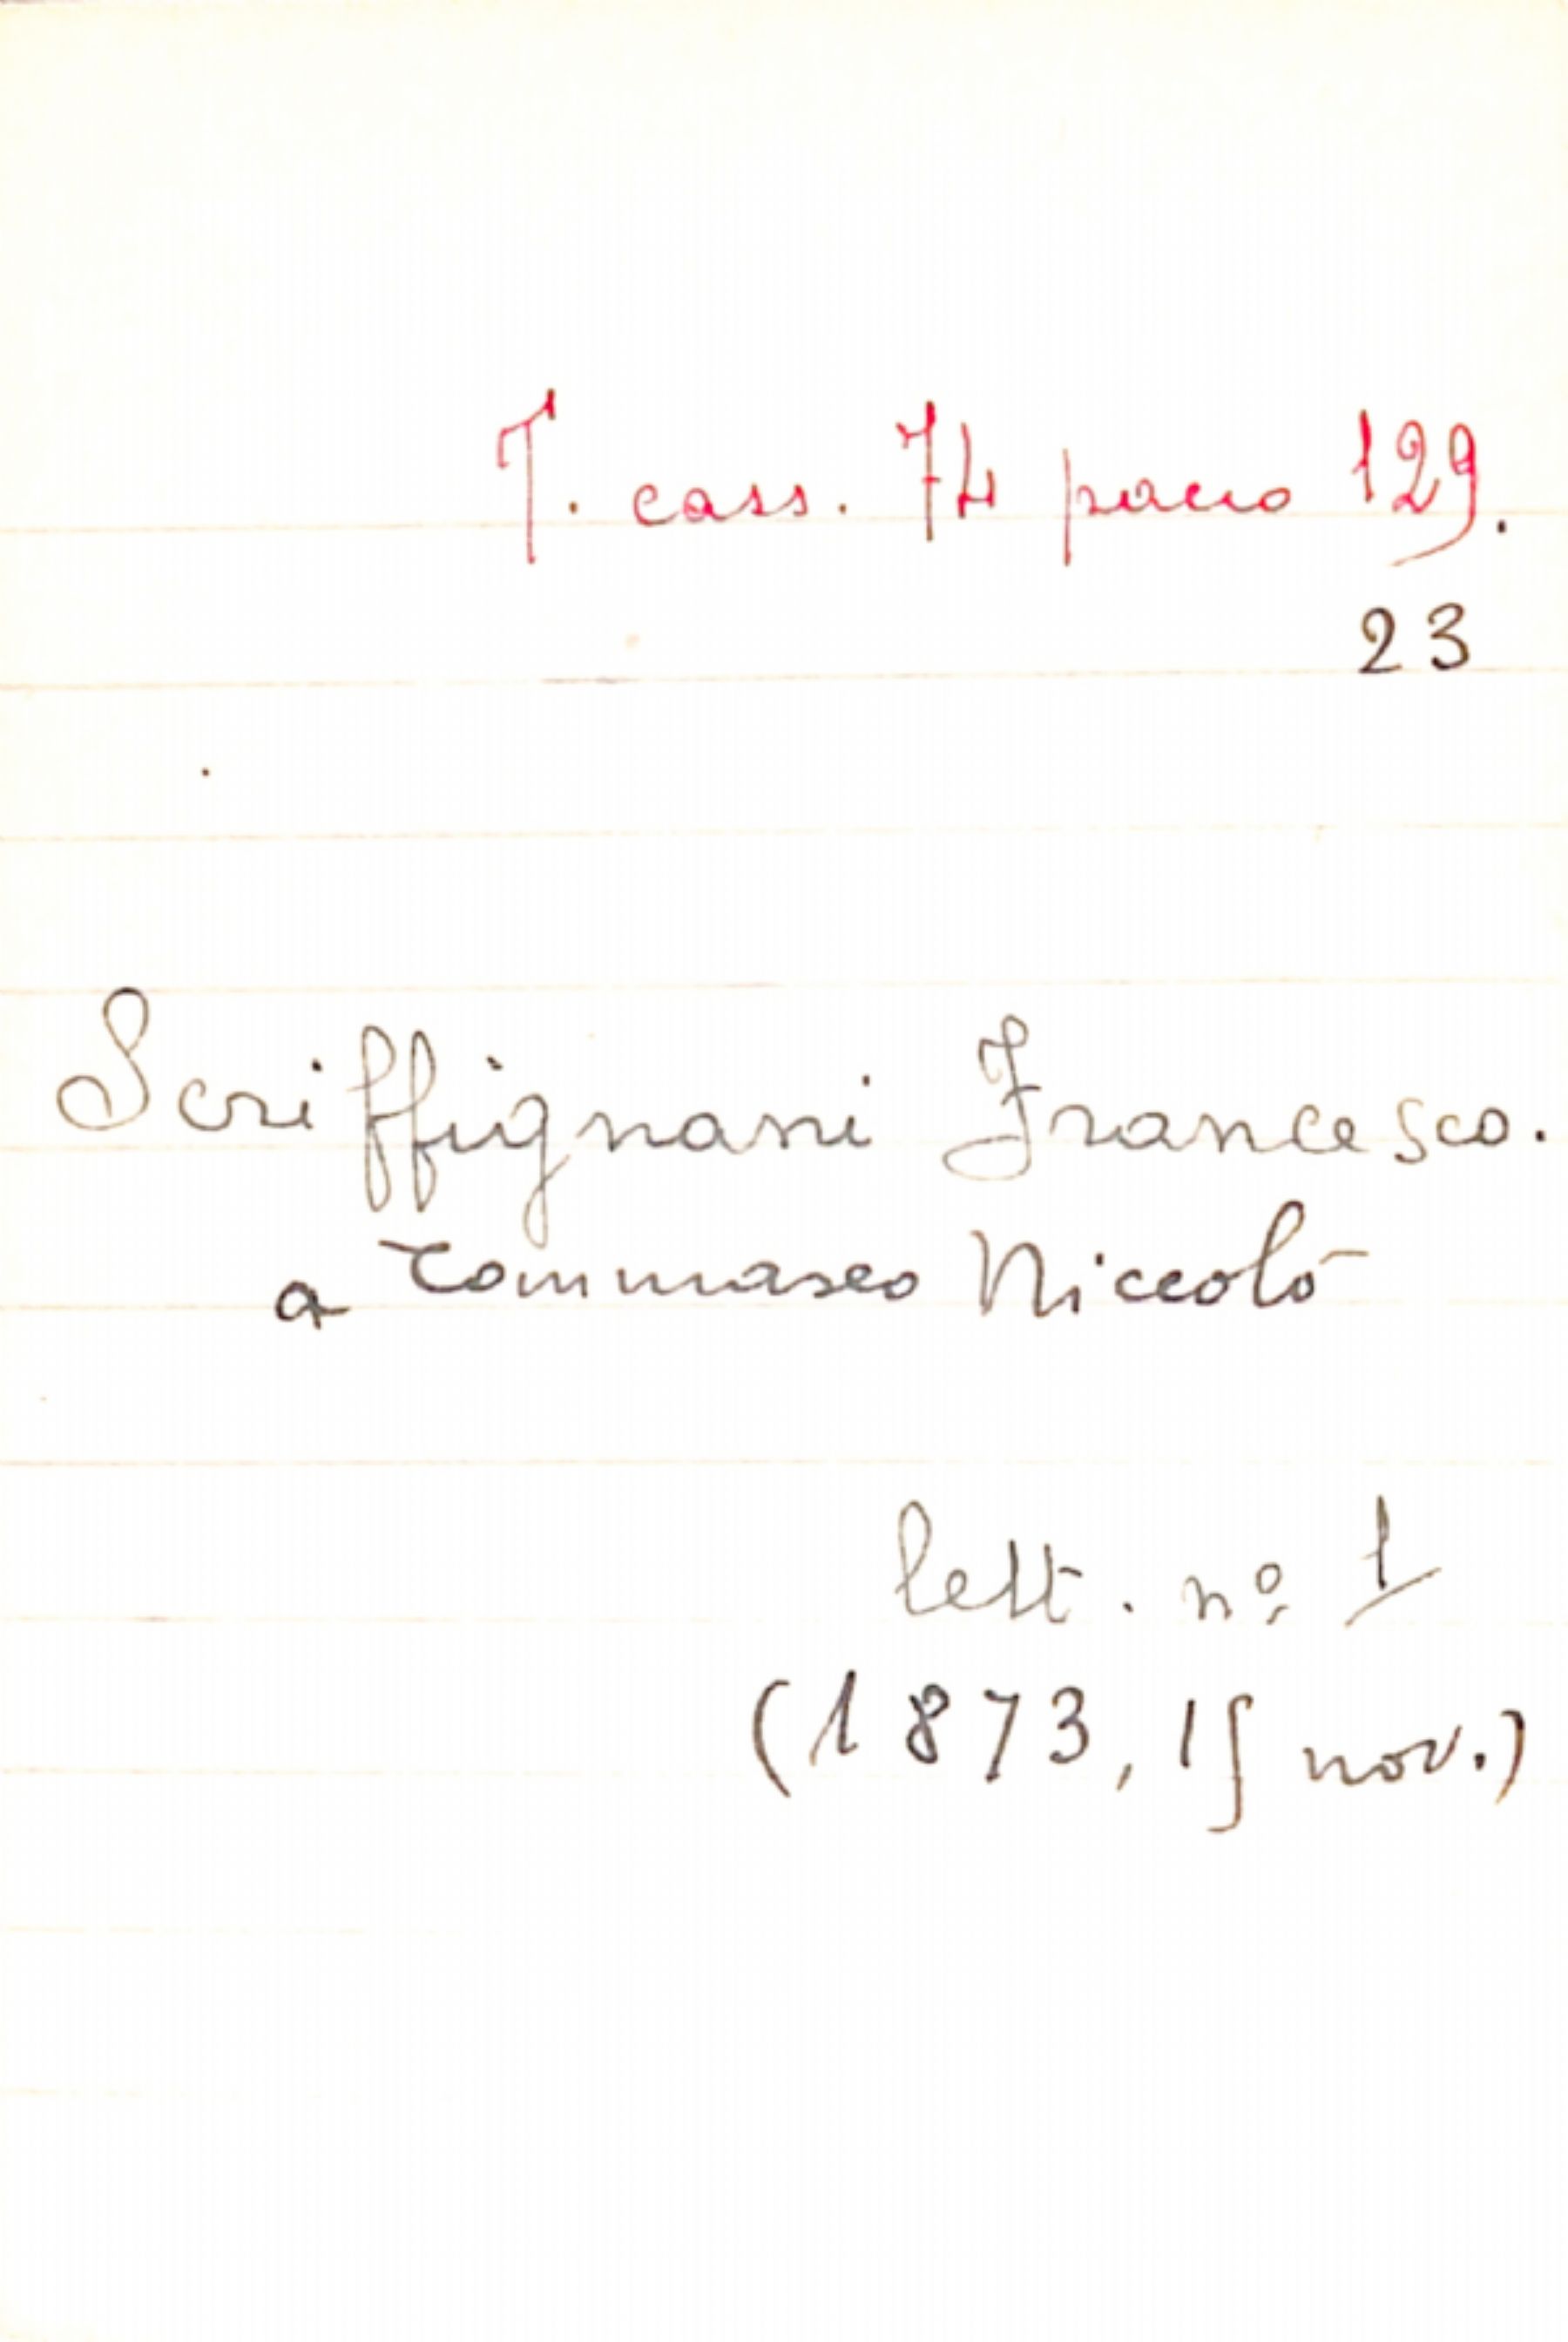 T. cass. 74 pacco 129.
23
Scriffignani Francesco.
a Tommaseo Niccolò
lett. nº 1
(1873, 15 nov.)